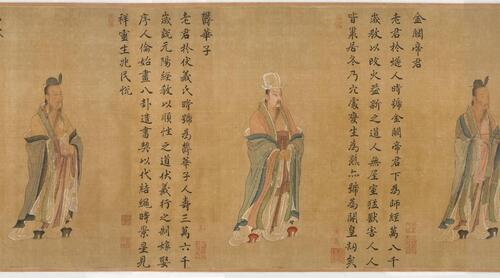 金闕帝君
老君於燧人時號金闕帝君下為師經萬八千
歲教以改火益新之道人無屋室猛獸害人人
皆巢居冬乃穴處變生為熟亦號為開皇刼矣
欝華子
老君於伏羲氏時號為欝華子人壽三萬六千
歲說元陽經教以順性之道伏羲行之制嫁娶
序人倫始畫八卦造書契以代結繩時景星見
祥靈生兆民悅